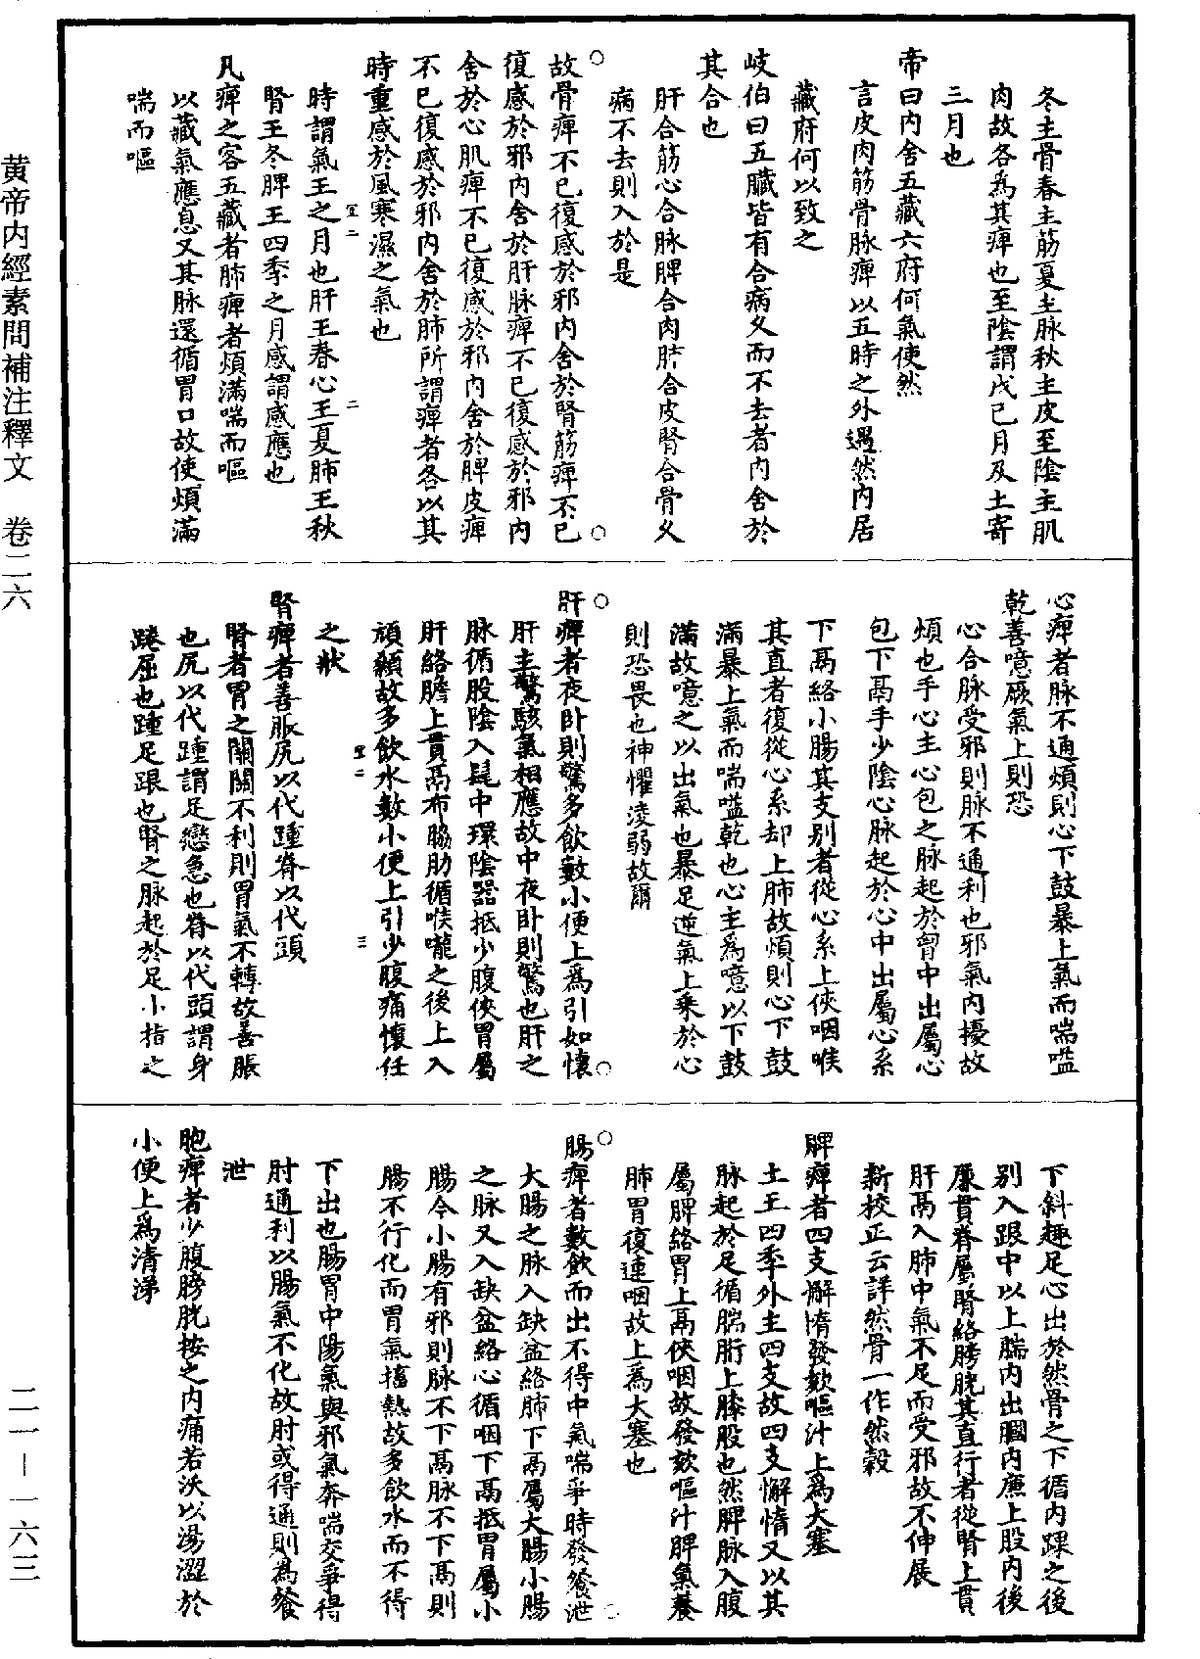 冬主骨春主筋夏主脉秋主皮至陰主肌
肉故各為其痺也至陰謂戊己月及土寄
三月也
帝曰内舍五藏六府何氣使然
言皮肉筋骨脉痺以五時之外遇然内居
藏府何以致之
岐伯曰五臟皆有合病久而不去者内舍於
其合也
肝合筋心合脉脾合肉肺合皮腎合骨久
病不去則入於是
○
故骨痺不已復感於邪内舍於腎筋痺不已
復感於邪内舍於肝脉痺不已復感於邪内
舍於心肌痺不已復感於邪内舍於脾皮痺
不已復感於邪内舍於肺所謂痺者各以其
時重感於風寒濕之氣也
時謂氣王之月也肝王春心王夏肺王秋
腎王冬脾王四季之月感謂感應也
凡痺之客五藏者肺痺者煩滿喘而嘔
以藏氣應息又其脉還循胃口故使煩滿
喘而嘔
心痺者脉不通煩則心下鼓暴上氣而喘嗌
乾善噫厥氣上則恐
心合脉受邪則脉不通利也邪氣内擾故
煩也手心主心包之脉起於胷中出屬心
包下鬲手少陰心脉起於心中出屬心系
下鬲絡小腸其支别者從心系上俠咽喉
其直者復從心系却上肺故煩則心下鼓
滿暴上氣而喘嗌乾也心主為噫以下鼓
滿故噫之以出氣也暴足逆氣上乘於心
則恐畏也神懼淩弱故爾
○
肝痺者夜卧則驚多飲數小便上為引如懷
肝主驚駭氣相應故中夜卧則驚也肝之
脉循股陰入髦中環陰器抵少腹俠胃屬
肝絡膽上貫鬲布脇肋循喉嚨之後上入
頏顙故多飲水數小便上引少腹痛懷任
之狀
腎痺者善脹尻以代踵脊以代頭
腎者胃之關關不利則胃氣不轉故善脹
也尻以代踵謂足攣急也脊以代頭謂身
踡屈也踵足跟也腎之脉起於足小指之
下斜趣足心出於然骨之下循内踝之後
别入跟中以上腨内出膕内廉上股内後
廉貫脊屬腎絡膀胱其直行者從腎上貫
肝鬲入肺中氣不足而受邪故不伸展
新校正云詳然骨一作然穀
脾痺者四支懈惰發欬嘔汁上為大塞
土王四季外主四支故四支懈惰又以其
脉起於足循腨䯒上膝股也然脾脉入腹
屬脾絡胃上鬲俠咽故發欬嘔汁脾氣養
肺胃復連咽故上為大塞也
○
腸痺者數飲而出不得中氣喘爭時發飧泄
大腸之脉入缺盆絡肺下鬲屬大腸小腸
之脉又入缺盆絡心循咽下鬲抵胃屬小
腸今小腸有邪則脉不下鬲脉不下鬲則
腸不行化而胃氣穡熱故多飲水而不得
下出也腸胃中陽氣與邪氣奔喘交爭得
肘通利以腸氣不化故肘或得通則為飧
泄
胞痺者少腹膀胱按之内痛若沃以湯澀於
小便上為清涕
黄帝内經素問補注釋文　卷二六
二一－一六三